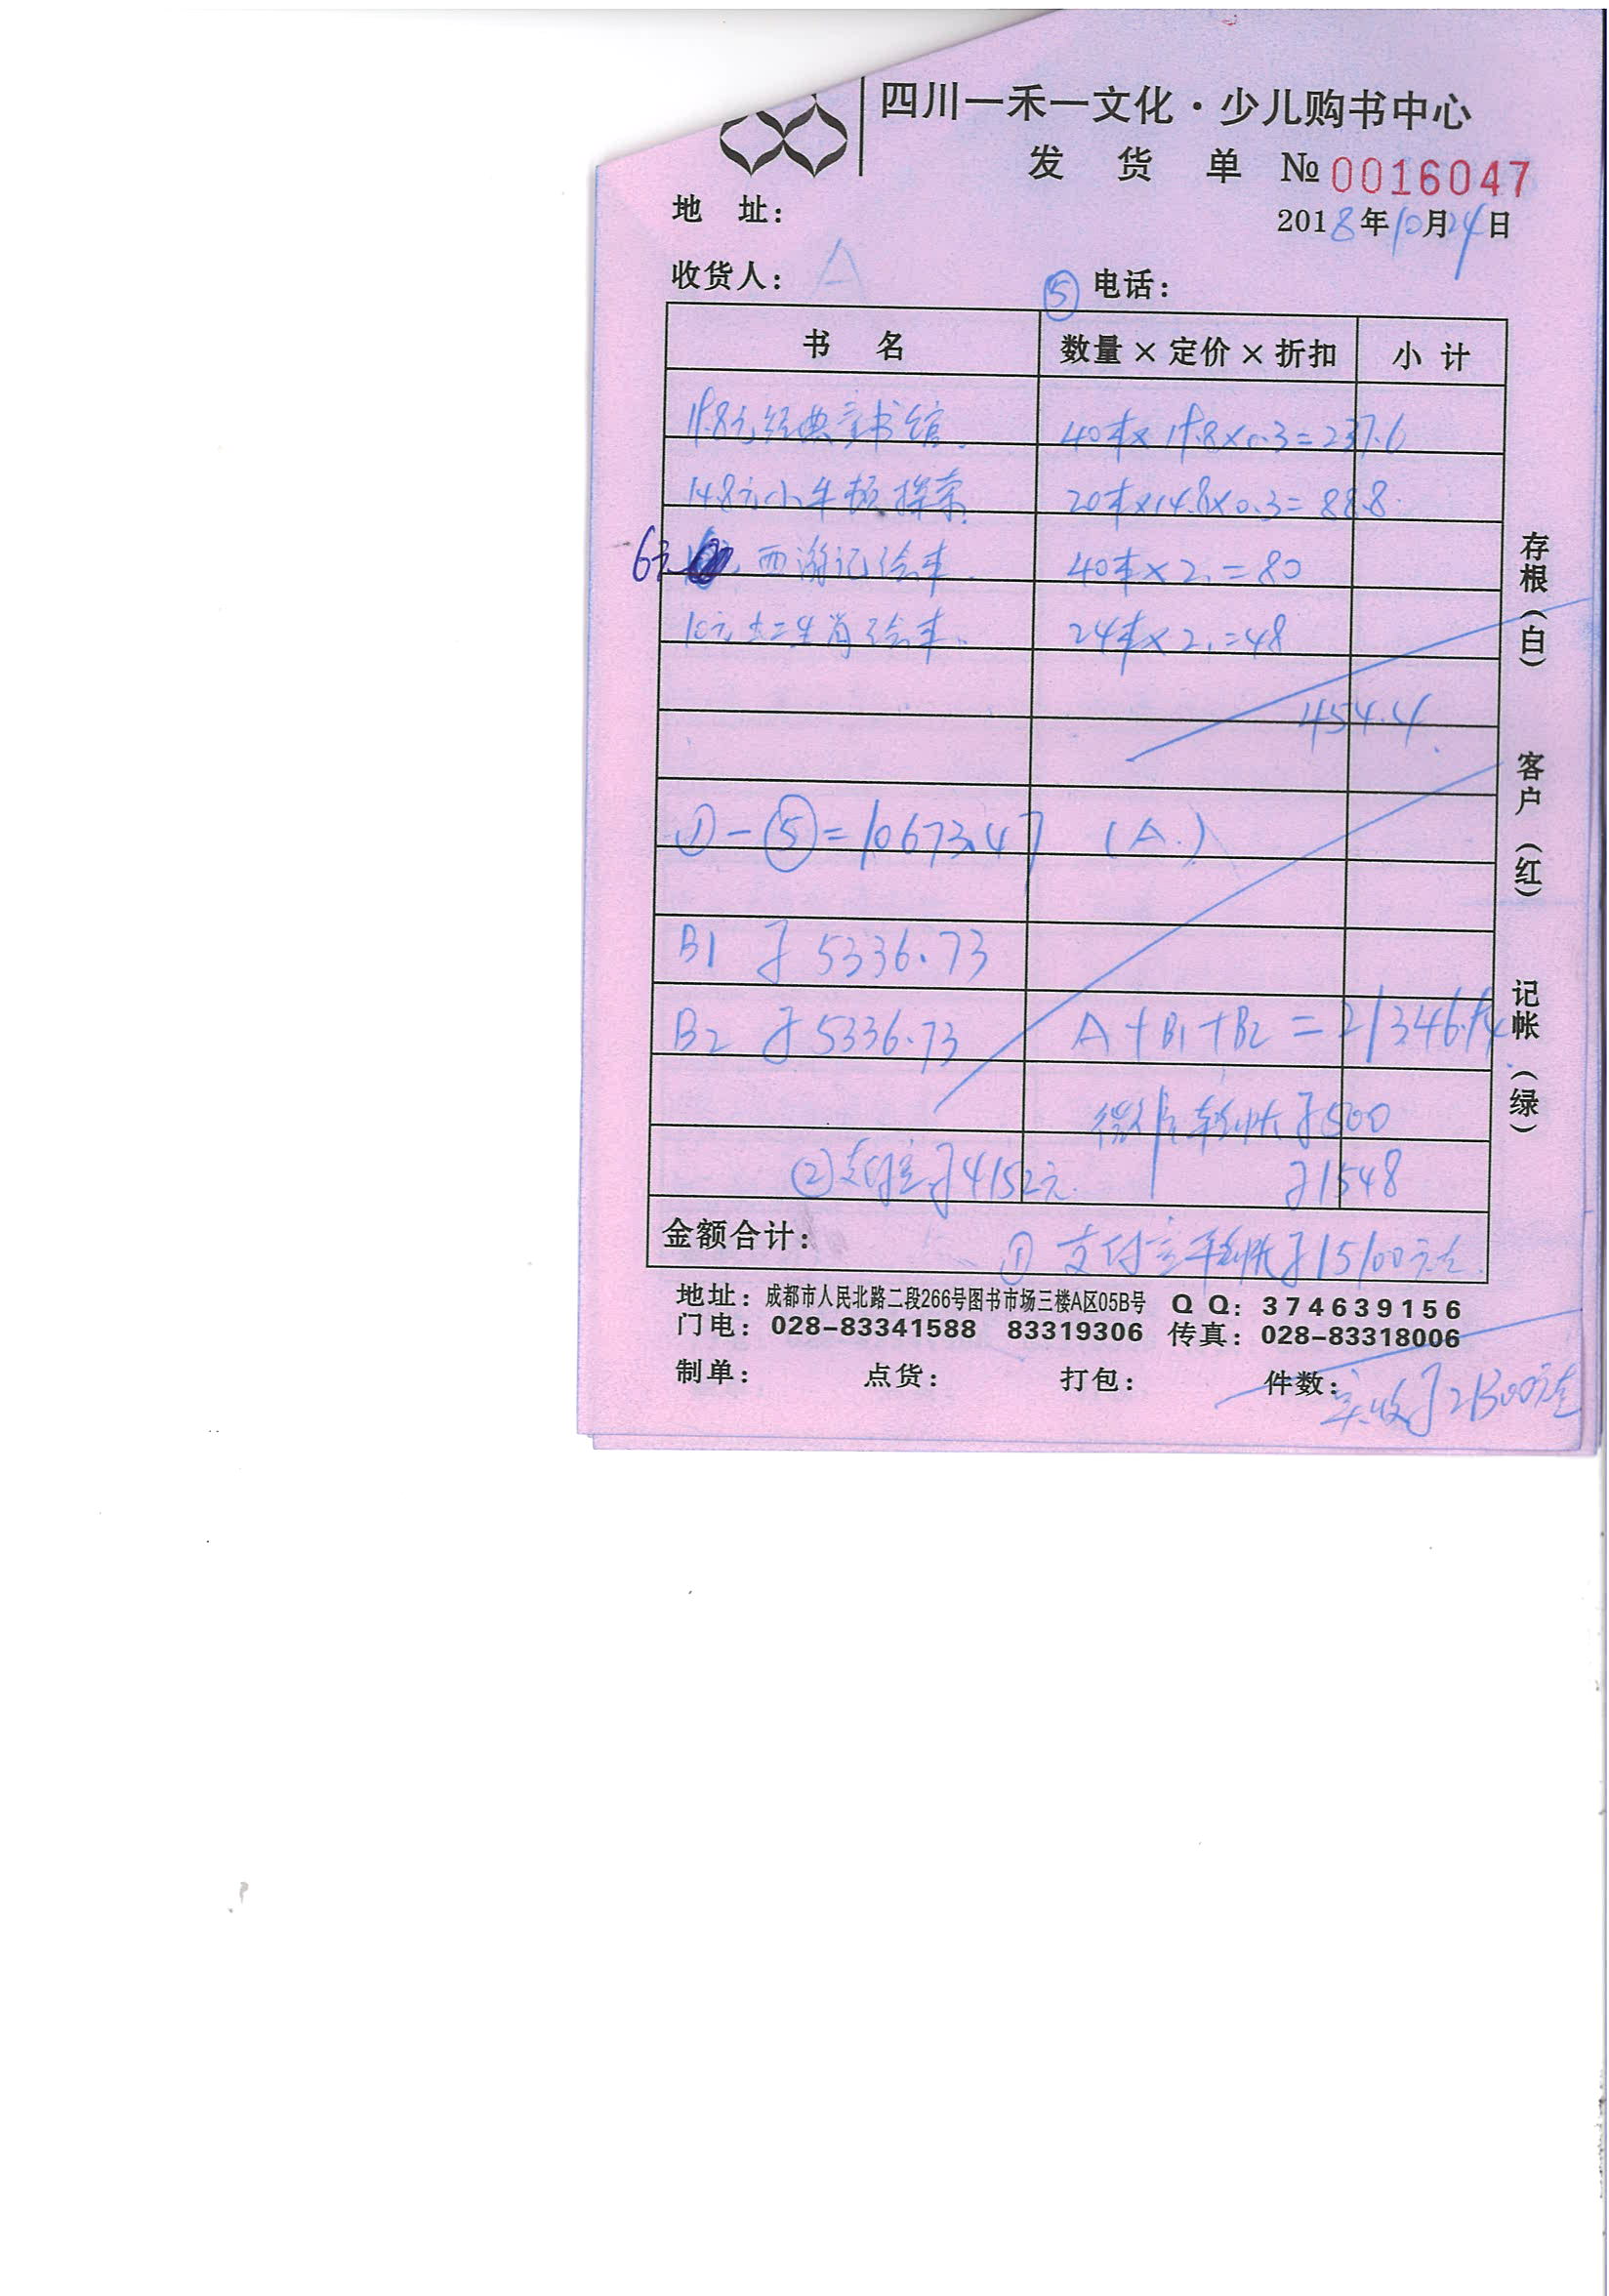 四川一禾一文化·少儿购书中心
发 货 单 № 0016047
地 址:
2018年10月24日
收货人: A
⑤ 电话:
书 名 数量×定价×折扣 小 计
19.8元经典童书馆. 40本×19.8×0.3=237.6
14.8元小牛顿探索. 20本×14.8×0.3=88.8.
6元 西游记绘本. 40本×2.=80
10元十二生肖绘本. 24本×2.=48
454.4.
①-⑤=10673.47 (A.)
B1 5336.73
B2 5336.73 A+B1+B2=21346.94.
微信转帐 500
②支付宝 4152元. 1548
金额合计: ① 支付宝转帐 15100元
地址: 成都市人民北路二段266号图书市场三楼A区05B号 Q Q: 374639156
门电: 028-83341588 83319306 传真: 028-83318006
制单: 点货: 打包: 件数:
实收 21300元
存根(白) 客户(红) 记帐(绿)